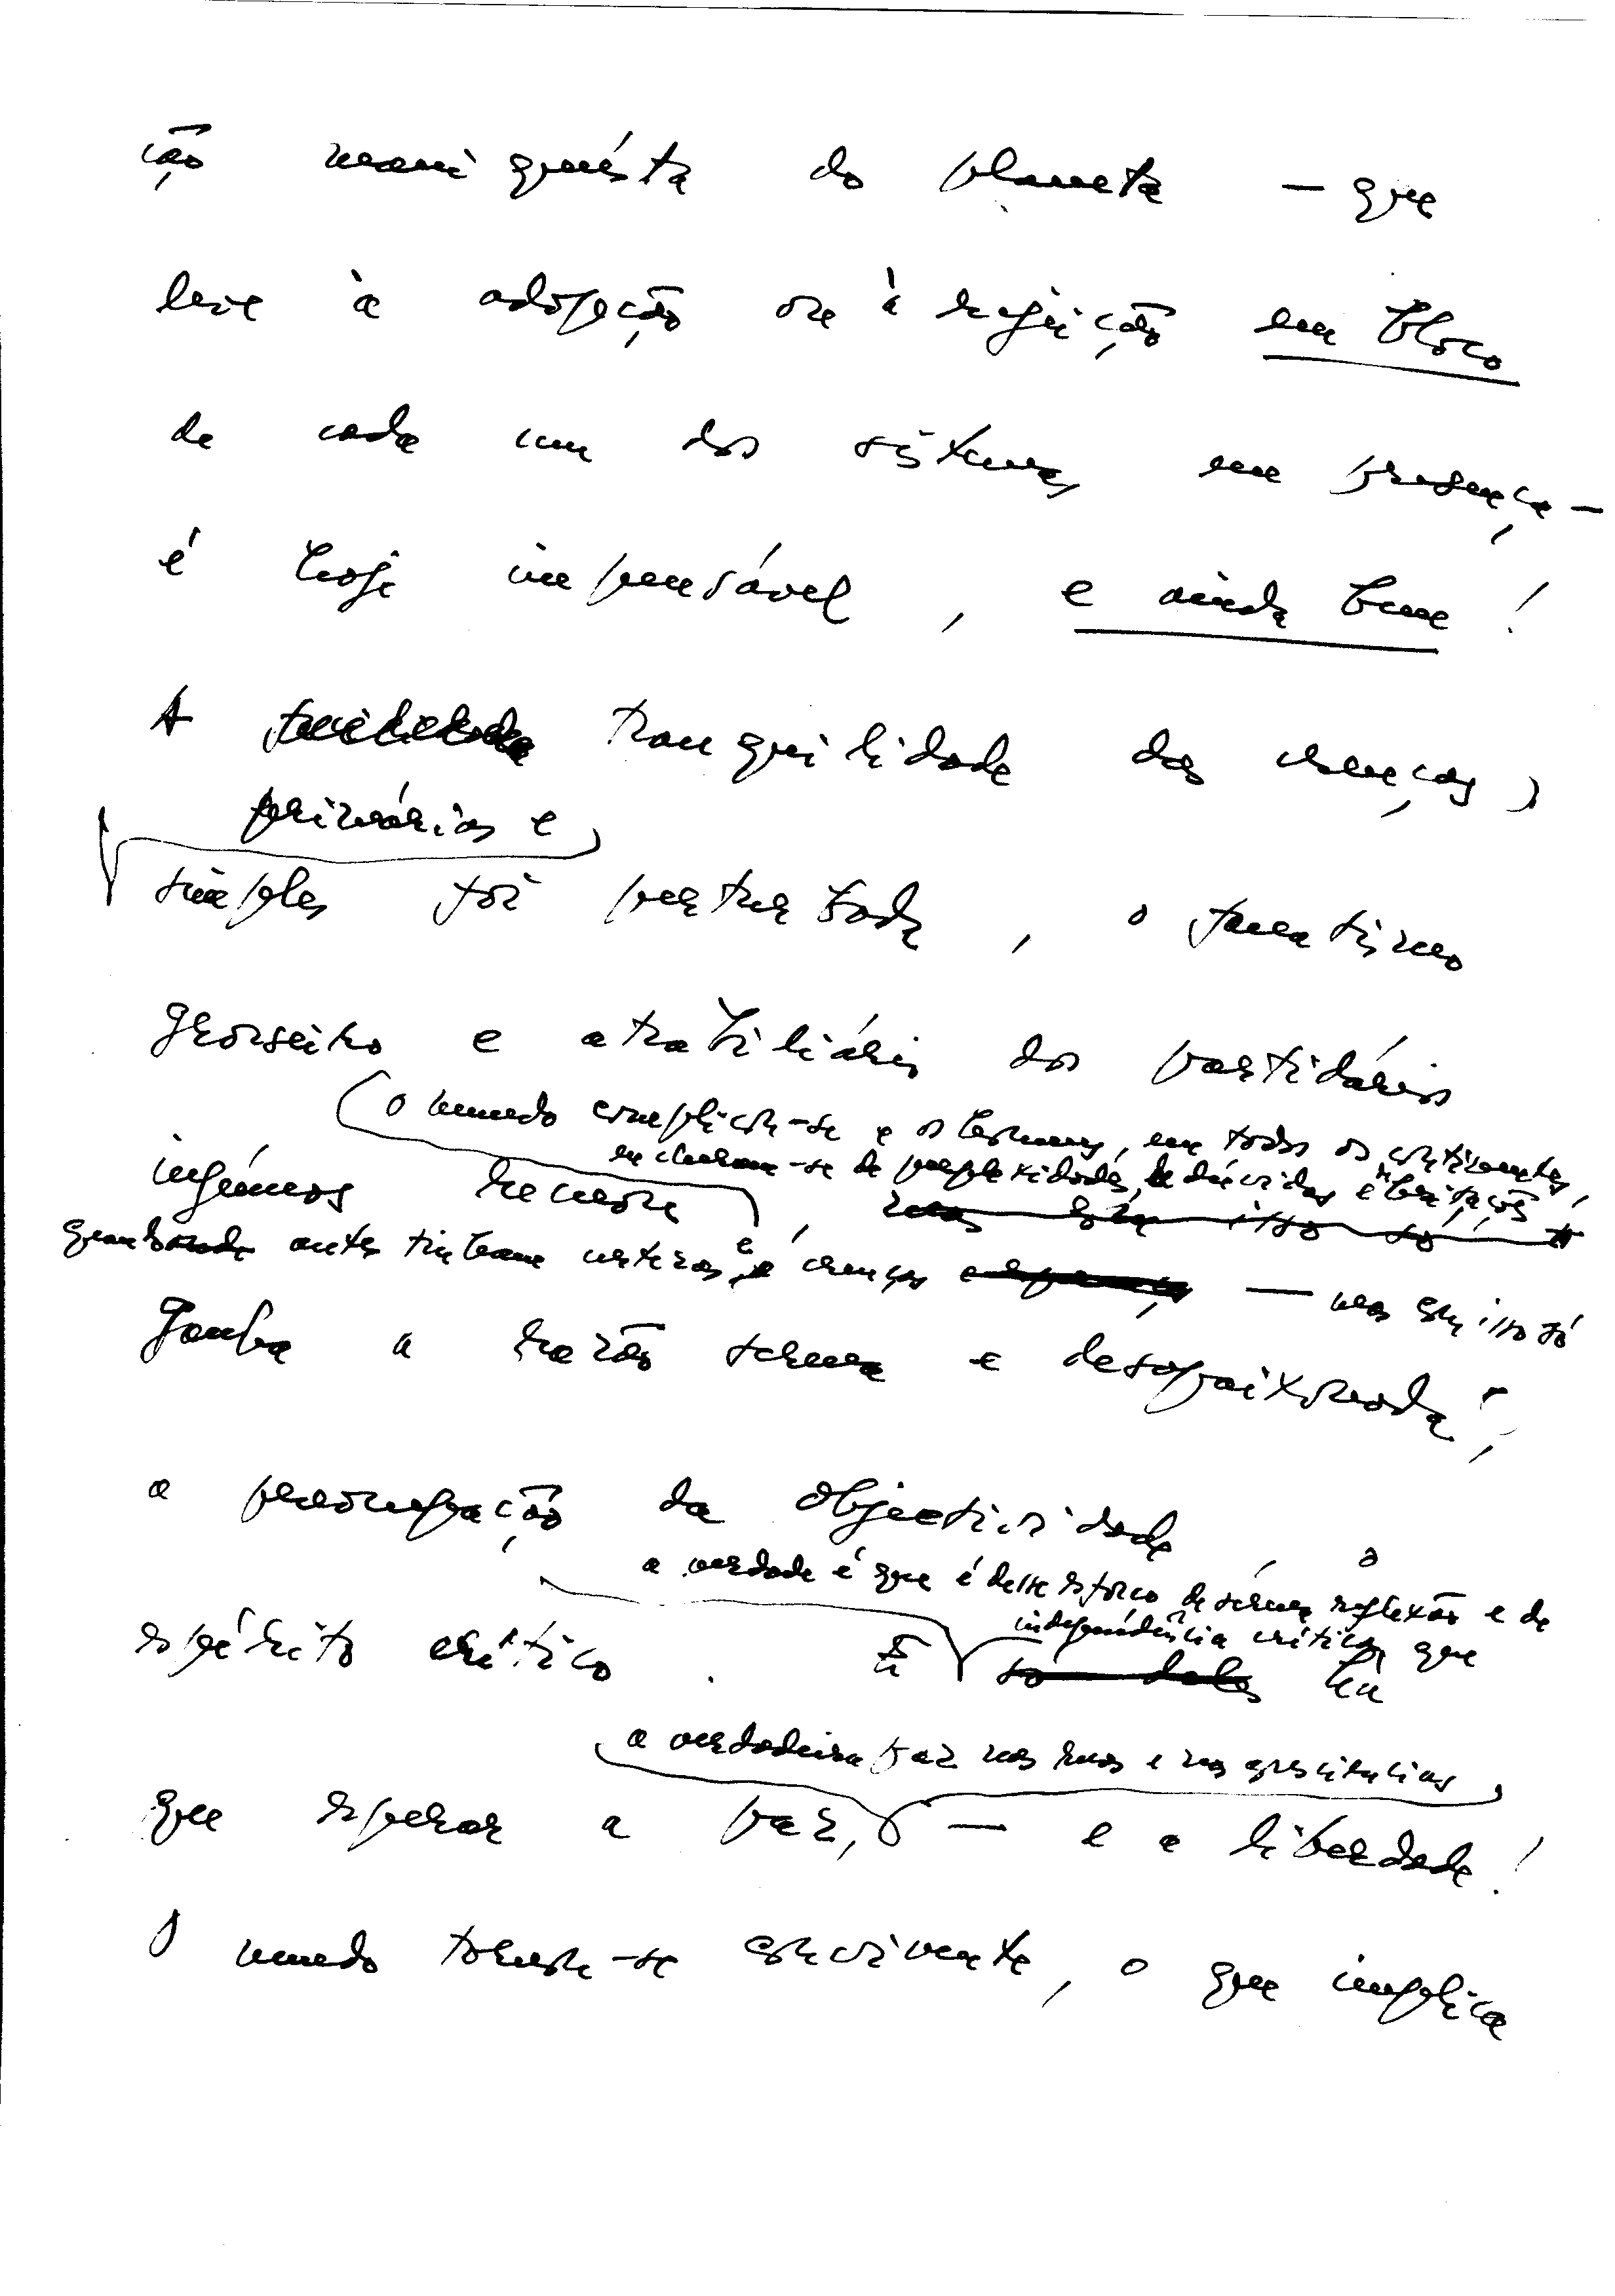 ção maniqueísta do planeta — que
leve à adopção ou à rejeição em bloco
de cada um dos sistemas em presença —
é hoje impensável, e ainda bem!
A tranquilidade das crenças,
primárias e
simples foi perturbada, o fanatismo
grosseiro e atrabiliário dos partidários
(o mundo complicou-se e os homens, em todos os continentes,
encheram-se de perplexidades, de dúvidas e hesitações
ingénuos recuou, mas com isso só
quando antes tinham certezas e crenças — mas com isso só
ganha a razão serena e desapaixonada,
a preocupação da objectividade, o
a verdade é que é desse esforço de séria reflexão e de
independência crítica que
espírito crítico. E só deles há
a verdadeira paz nas ruas e nas consciências,
que esperar a paz, — e a liberdade!
O mundo tornou-se convivente, o que implica